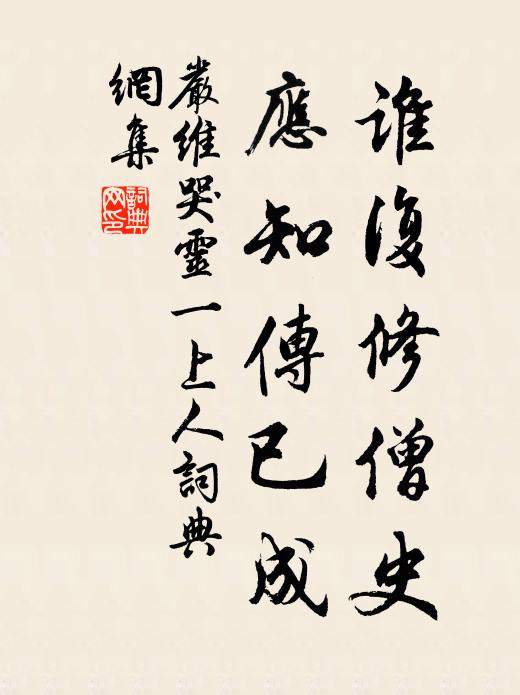 誰復修僧史
應知傳已成
嚴維哭靈一上人詞典
網集
詞典網印